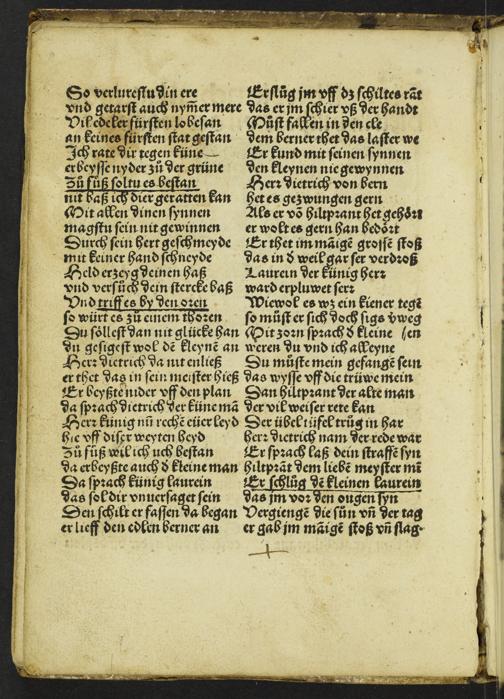 So verlurestu din ere
vnd getarst auch nym̄er mere
Vil edeler fürsten lobesan
an keines fürsten stat gestan
Ich rate dir tegen küne
erbeysse nyder zů der grüne
Zů fůß soltu es bestan
nit baß ich dier geratten kan
Mit allen dinen synnen
magstu sein nit gewinnen
Durch sein hert geschmeyde
mit keiner hand schneyde
Held erzeyg deinen haß
vnd versůch dein stercke baß
Vnd triff es by den oren
so würt es zů einem thoren
Du söllest dan nit glücke han
du gesigest wol dē kleynē an
Herr dietrich da nit enließ
er thet das in sein meister hieß
Er beyßte nider vff den plan
da sprach dietrich der küne mā
Herr künig nū rechē eüer leyd
hie vff diser weyten heyd
Zů fůß wil ich uch bestan
da erbeyßte auch d kleine man
Da sprach künig laurein
das sol dir vnuersaget sein
Den schilt er fassen da began
er lieff den edlen berner an
Er slůg jm vff dz schiltes rāt
das er jm schier vß der handt
Můst fallen in den cle
dem berner thet das laster we
Er kund mit seinen synnen
den kleynen nie gewynnen
Herr dietrich von bern
het es gezwungen gern
Als er vō hiltprant het gehört
er wolt es gern han bedört
Er thet im māigē grosse stoß
das in d weil gar ser verdroß
Laurein der künig herr
ward erpluwet serr
Wiewol es wz ein kiener tegē
so můst er sich doch sigs vweg
Mit zorn sprach d kleine (en
weren du vnd ich alleyne
Du můste mein gefangē sein
das wysse vff die trüwe mein
Dan hiltprant der alte man
der vil weiser rete kan
Der übel tüfel trůg in har
herr dietrich nam der rede war
Er sprach laß dein straffē syn
hiltprāt dem liebē meyster mā
Er schlůg dē kleinen laurein
das jm vor den ougen syn
Vergiengē die sūn vn̄ der tag
er gab jm māigē stoß vn̄ slag